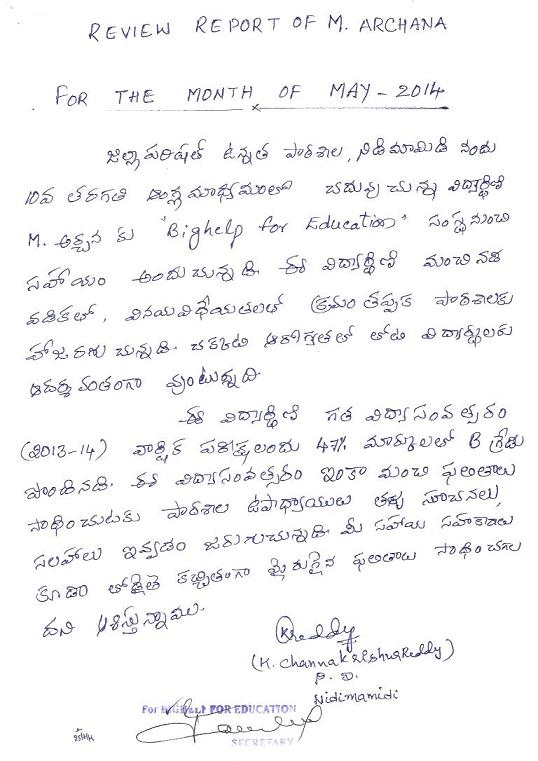 REVIEW REPORT OF M. ARCHANA
FOR THE MONTH OF MAY - 2014
జిల్లా పరిషత్ ఉన్నత పాఠశాల, నిడిమామిడి నందు
10వ తరగతి ఆంగ్ల మాధ్యమంలో చదువుచున్న విద్యార్థిణి
M. అర్చన కు "Bighelp for Education" సంస్థ నుంచి
సహాయం అందుచున్నది. ఈ విద్యార్థిణి మంచి నడ
వడికతో, వినయవిధేయతలతో క్రమం తప్పక పాఠశాలకు
హాజరగుచున్నది. చక్కటి ఆరోగ్యతతో తోటి విద్యార్థులకు
ఆదర్శవంతంగా వుంటున్నది.
ఈ విద్యార్థిణి గత విద్యాసంవత్సరం
(2013-14) వార్షిక పరీక్షలందు 47% మార్కులతో B గ్రేడు
పొందినది. ఈ విద్యాసంవత్సరం ఇంకా మంచి ఫలితాలు
సాధించుటకు పాఠశాల ఉపాధ్యాయులు తగు సూచనలు,
సలహాలు ఇవ్వడం జరుగుచున్నది. మీ సహాయ సహకారాలు
కూడా తోడైతే కచ్చితంగా మెరుగైన ఫలితాలు సాధించగల
దని ఆశిస్తున్నాము.
KReddy
(K. Channakeshava Reddy)
P. D.
Nidimamidi
For BIGHELP FOR EDUCATION
SECRETARY